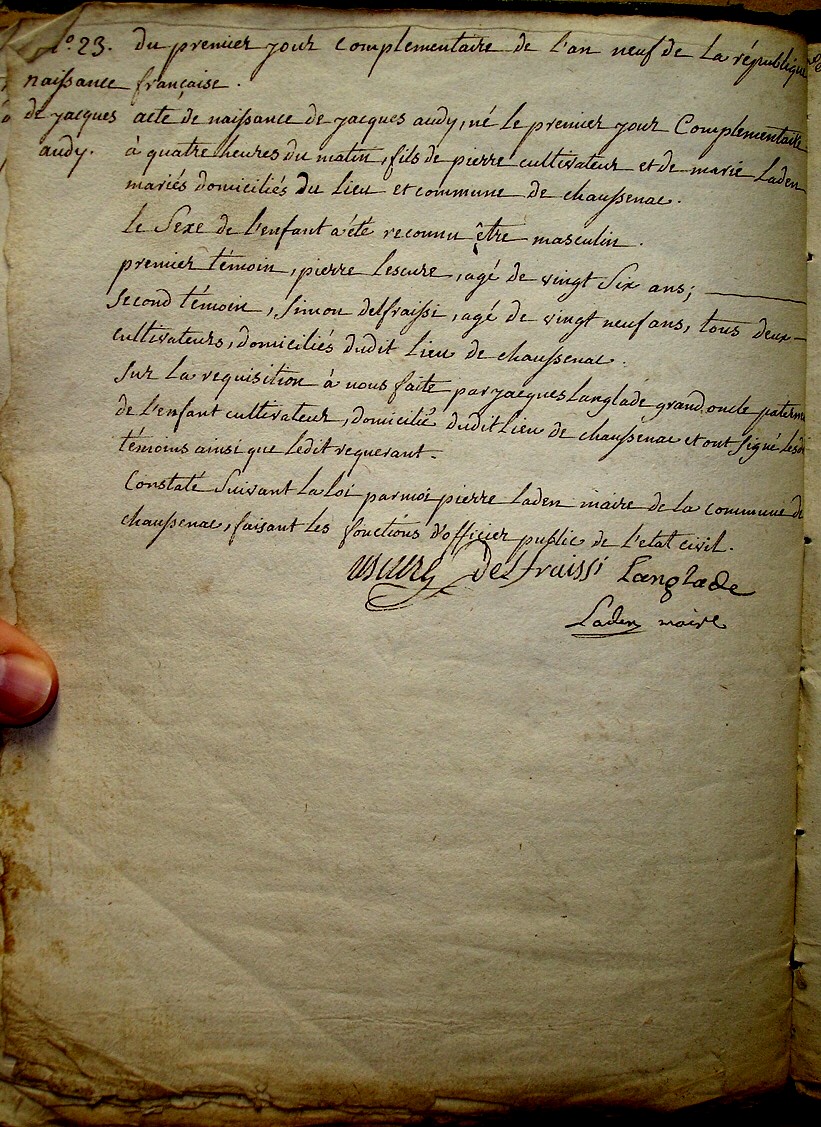 N.° 23. du premier jour complementaire de l'an neuf de la république
naissance française.
de jacques acte de naissance de jacques audy, né le premier jour Complementaire
audy. à quatre heures du matin, fils de pierre cultivateur et de marie Laden
mariés domiciliés du Lieu et commune de chaussenac.
le Sexe de l'enfant a été reconnu être masculin.
premier témoin, pierre Lescure, agé de vingt Six ans;
Second témoin, Simon delfraissi, agé de vingt neuf ans, tous deux
cultivateurs, domiciliés dudit Lieu de chaussenac.
Sur La requisition à nous faite par jacques Langlade grand oncle paterne
de l'enfant cultivateur, domicilié dudit Lieu de chaussenac et ont signé lesd
témoins ainsi que ledit requerant.
Constaté Suivant La Loi par moi pierre Laden maire de la commune de
chaussenac, faisant les fonctions d'officier public de l'etat civil.
Delfraissi Langlade
Laden maire